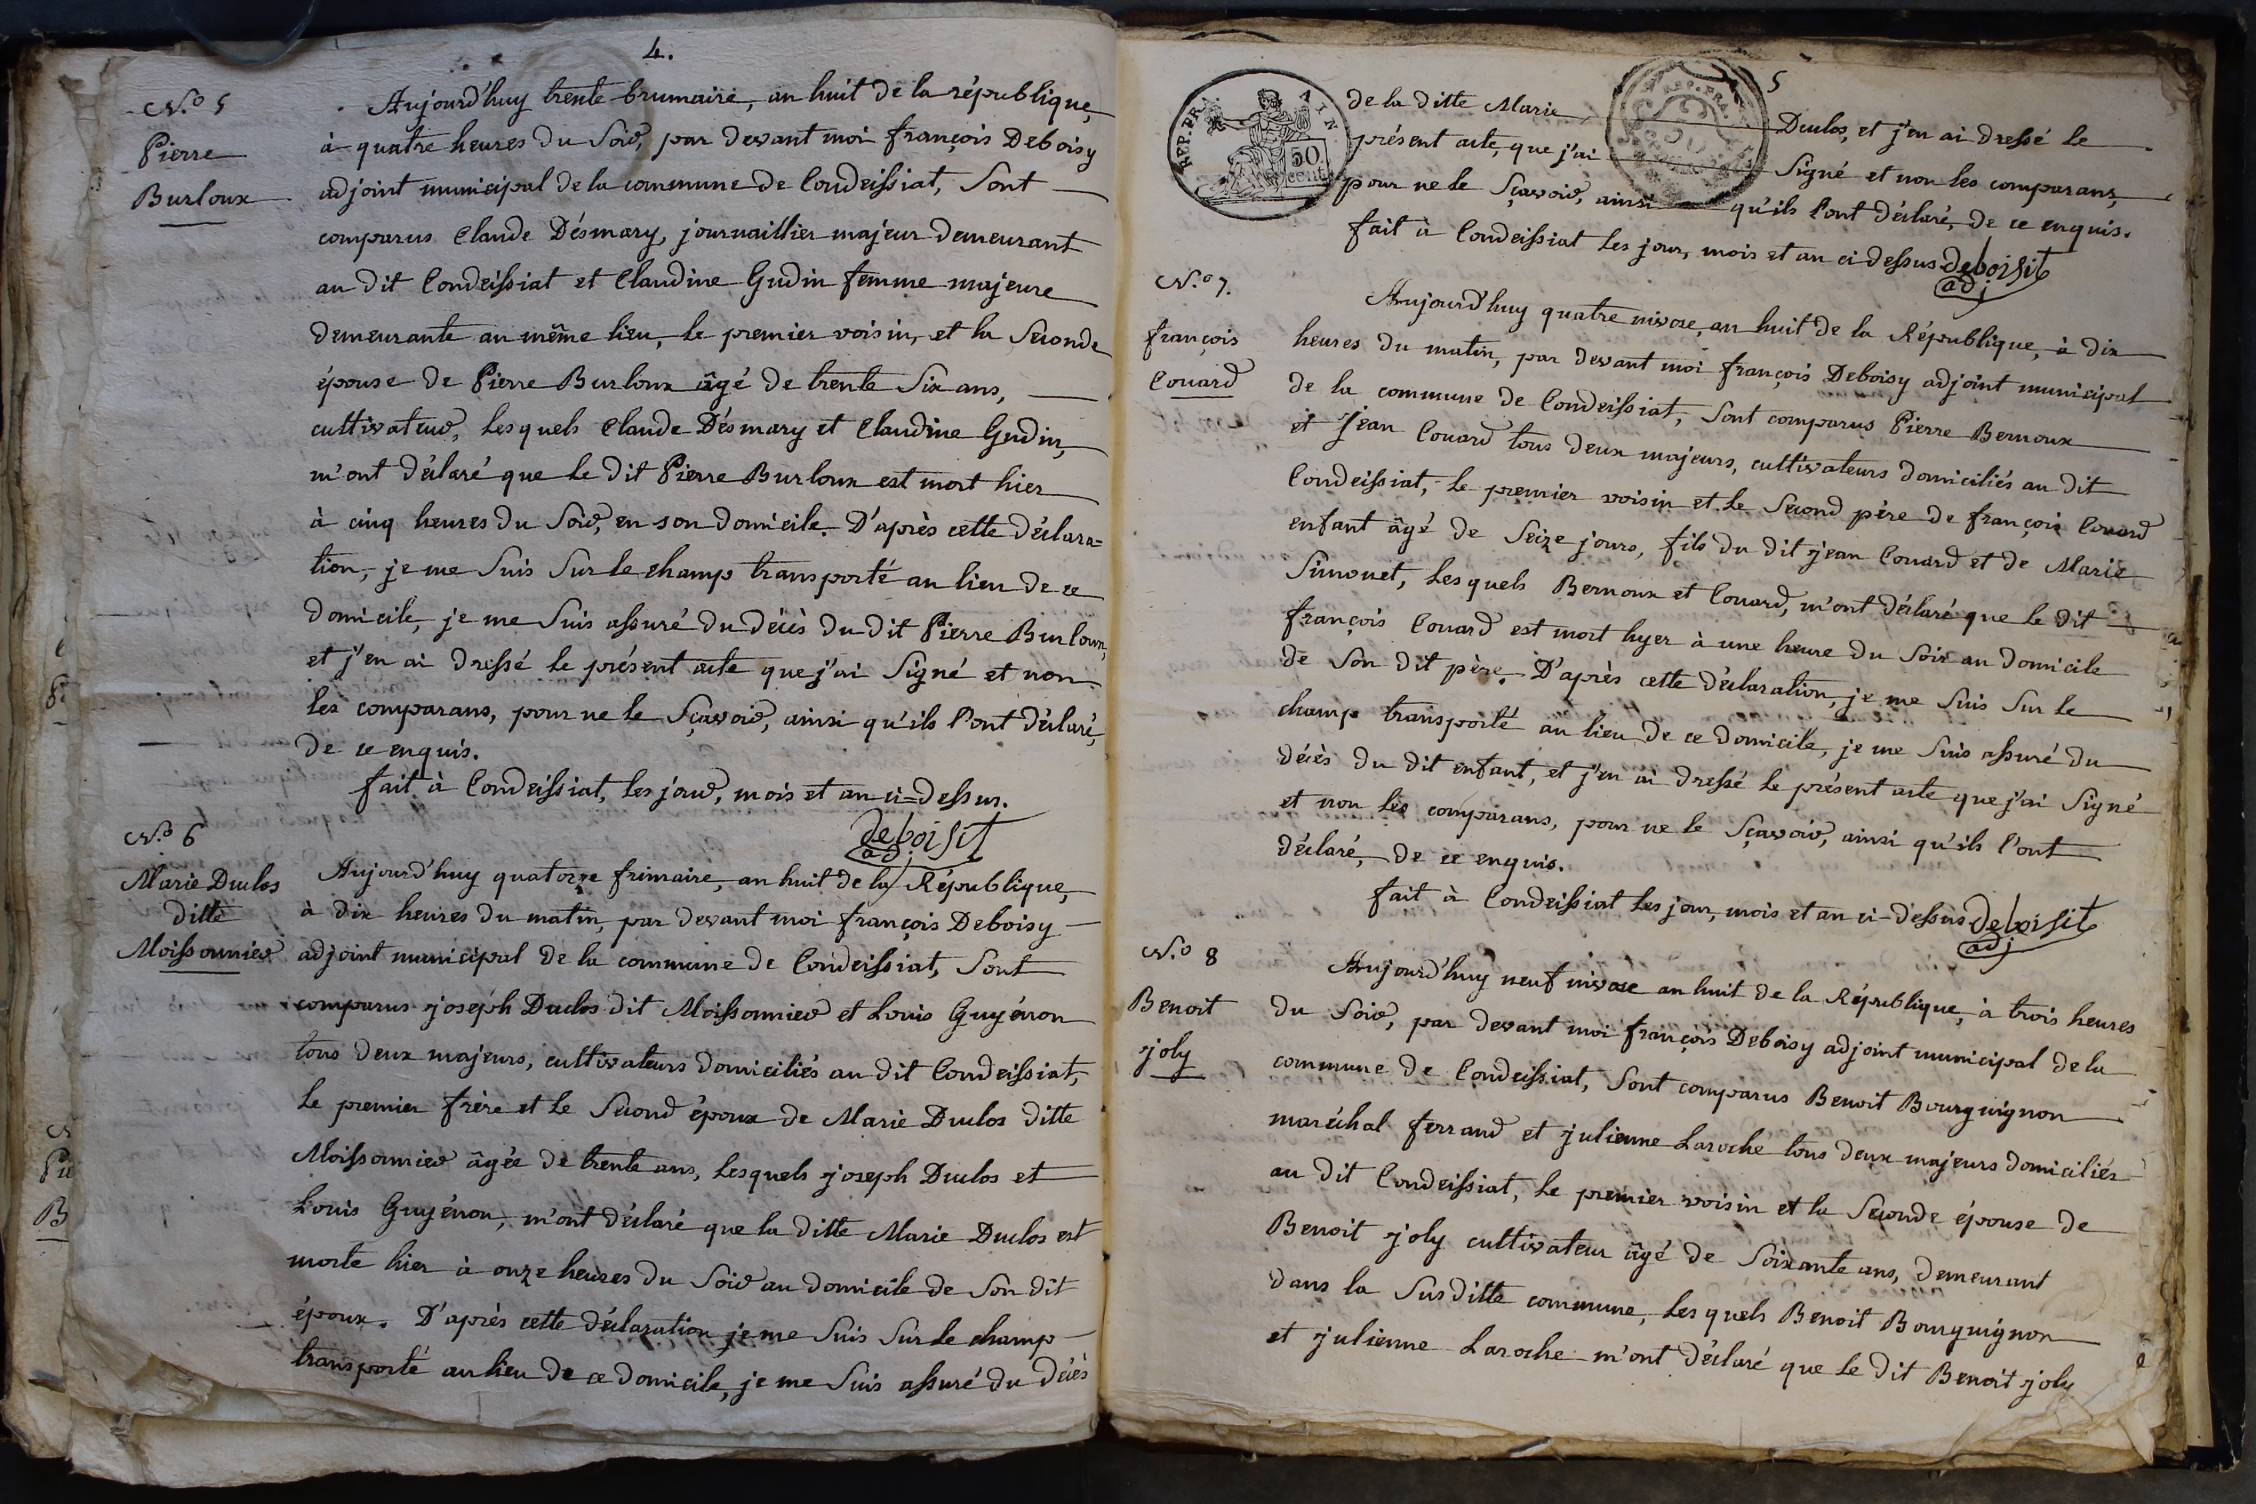 4.
N.o 5
Pierre
Burloux
Aujourd'huy trente brumaire, an huit de la république,
à quatre heures du Soir, par devant moi françois Deboisy
adjoint municipal de la commune de Condeissiat, Sont
comparus Claude Désmary, journaillier majeur demeurant
au dit Condeissiat et Claudine Gudin femme majeure
demeurante au même lieu, le premier voisin, et la Seconde
épouse de Pierre Burloux âgé de trente Six ans,
cultivateur, Lesquels Claude Désmary et Claudine Gudin,
m'ont déclaré que le dit Pierre Burloux est mort hier
à cinq heures du Soir, en son domicile. D'après cette déclara=
tion, je me Suis Sur le champ transporté au lieu de ce
domicile, je me Suis assuré du décès du dit Pierre Burloux,
et j'en ai dressé le présent acte que j'ai Signé et non
les comparans, pour ne le Sçavoir, ainsi qu'ils l'ont déclaré,
de ce enquis.
fait à Condeissiat, les jour, mois et an ci=dessus.
deboisit
adj
N.o 6
Marie Duclos
ditte
Moissonnier
Aujourd'huy quatorze frimaire, an huit de la République,
à dix heures du matin, par devant moi françois Deboisy
adjoint municipal de la commune de Condeissiat, Sont
comparus joseph Duclos dit Moissonnier et Louis Guyénon
tous deux majeurs, cultivateurs domiciliés au dit Condeissiat,
le premier frère et le Second époux de Marie Duclos ditte
Moissonnier âgée de trente ans, Lesquels joseph Duclos et
Louis Guyénon, m'ont déclaré que la ditte Marie Duclos est
morte hier à onze heures du Soir au domicile de Son dit
époux. D'après cette déclaration je me Suis Sur le champ
transporté au lieu de ce domicile, je me Suis assuré du décès
5
REP. FRA. AIN
50
cent.
REP. FRA.
de la ditte Marie Duclos, et j'en ai dressé le
présent acte, que j'ai Signé et non les comparans,
pour ne le Sçavoir, ainsi qu'ils l'ont déclaré, de ce enquis.
fait à Condeissiat les jour, mois et an ci dessus deboisit
adj
N.o 7.
françois
Couard
Aujourd'huy quatre nivose, an huit de la République, à dix
heures du matin, par devant moi françois Deboisy adjoint municipal
de la commune de Condeissiat, Sont comparus Pierre Bernoux
et Jean Couard tous deux majeurs, cultivateurs domiciliés au dit
Condeissiat, le premier voisin et le Second père de françois Couard
enfant âgé de Seize jours, fils du dit jean Couard et de Marie
Simonet, Lesquels Bernoux et Couard, m'ont déclaré que le dit
françois Couard est mort hyer à une heure du Soir au domicile
de Son dit père. D'après cette déclaration, je me Suis Sur le
champ transporté au lieu de ce domicile, je me Suis assuré du
décès du dit enfant, et j'en ai dressé le présent acte que j'ai Signé
et non les comparans, pour ne le Sçavoir, ainsi qu'ils l'ont
déclaré, de ce enquis.
fait à Condeissiat les jour, mois et an ci-dessus deboisit
adj
N.o 8
Benoit
joly
Aujourd'huy neuf nivose an huit de la République, à trois heures
du Soir, par devant moi françois Deboisy adjoint municipal de la
commune de Condeissiat, Sont comparus Benoit Bourguignon
maréchal ferrand et julienne Laroche tous deux majeurs domiciliés
au dit Condeissiat, le premier voisin et la Seconde épouse de
Benoit joly cultivateur âgé de Soixante ans, demeurant
dans la Susditte commune, Lesquels Benoit Bourguignon
et julienne Laroche m'ont déclaré que le dit Benoit joly